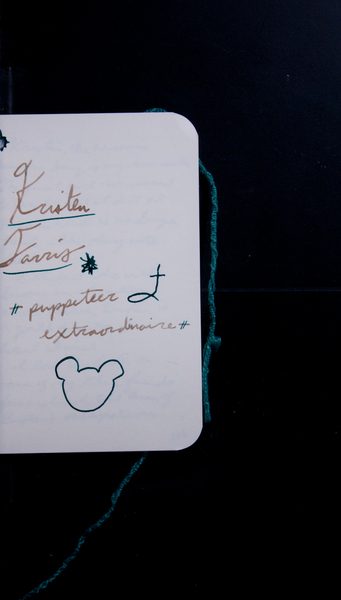 Kristen
Farris
# puppeteer
extraordinaire #